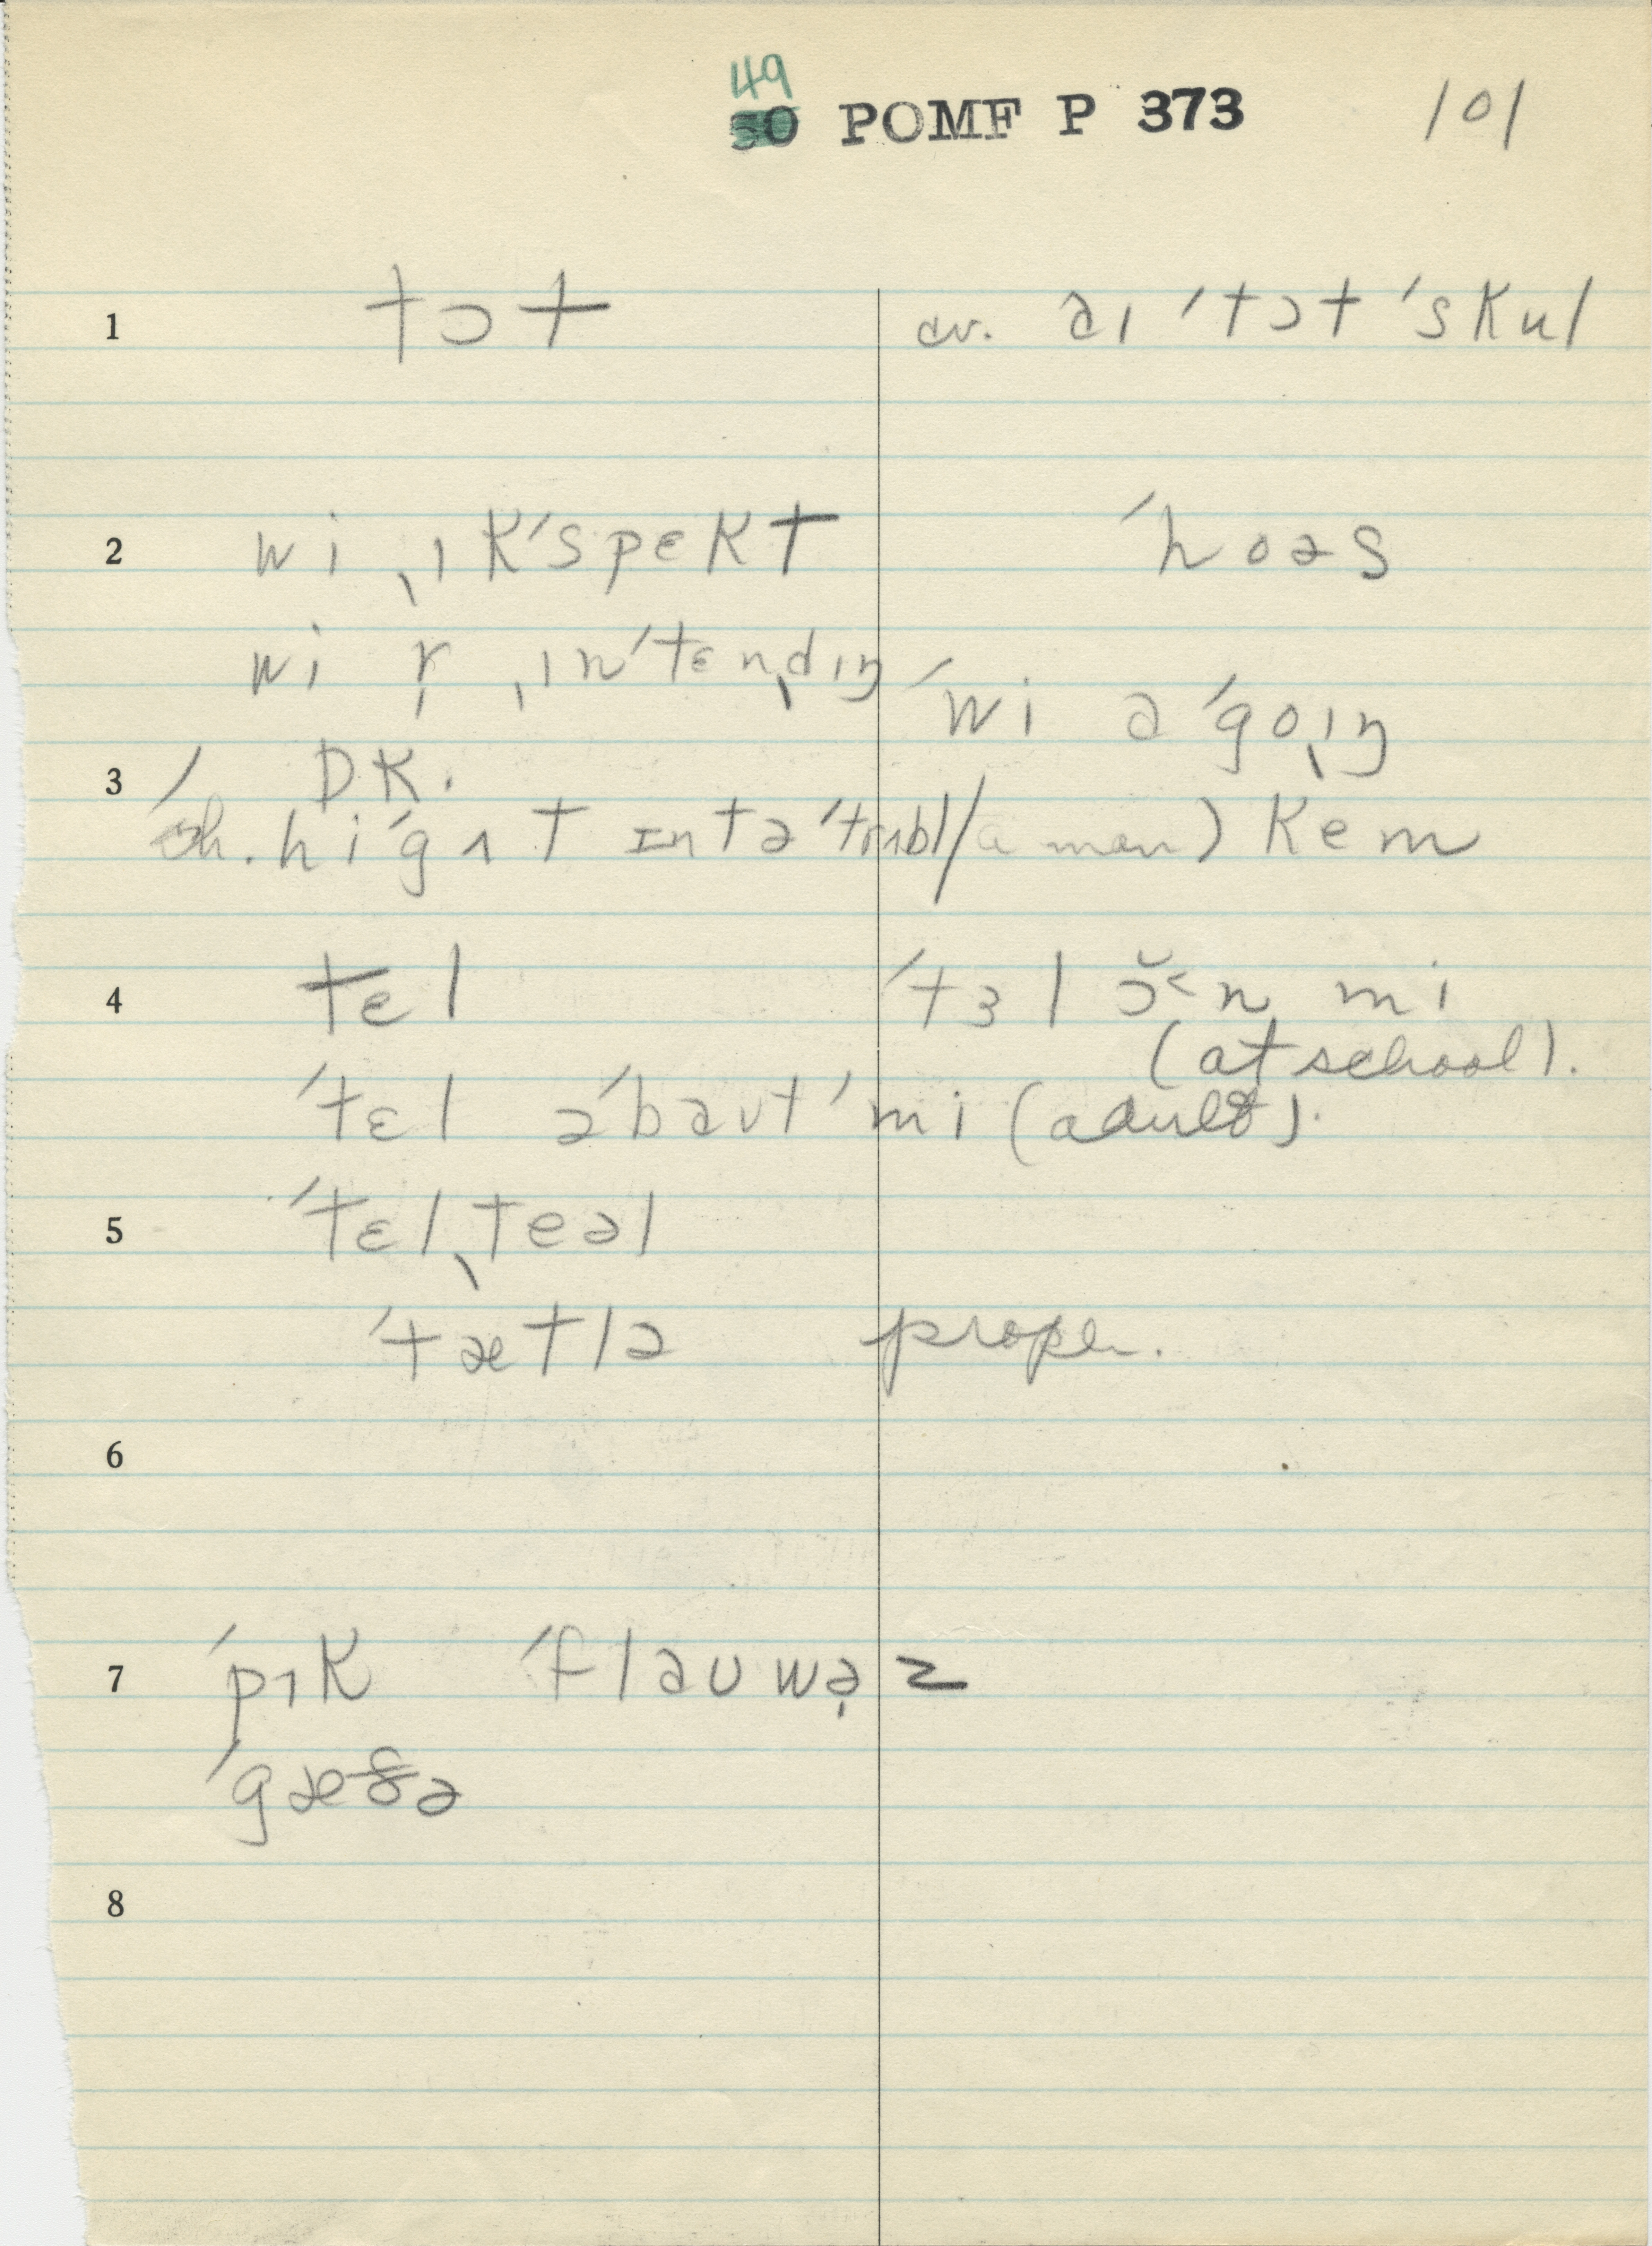 49
50 POMF P 373 101
1 tɔt cv. əɪ ˈtɔt ˈskul
2 wi ˌɪkˈspɛkt ˈhoəs
wi r̩ ˌɪnˈtɛnˌdɪŋ
ˈwi ə ˈgoˌɪŋ
3 DK.
hi ˈgɪt ɪntə ˈtrʌbl/a man) kem
4 tɛl ˈtɜl ɔ̆˂n mi
(at school).
ˈtɛl əˈbəʊt ˈmi (adult).
5 ˈtɛlˌteəl
ˈtætlə proper.
6
7 ˈpɪk ˈfləʊwə̣z
ˈgæðə
8